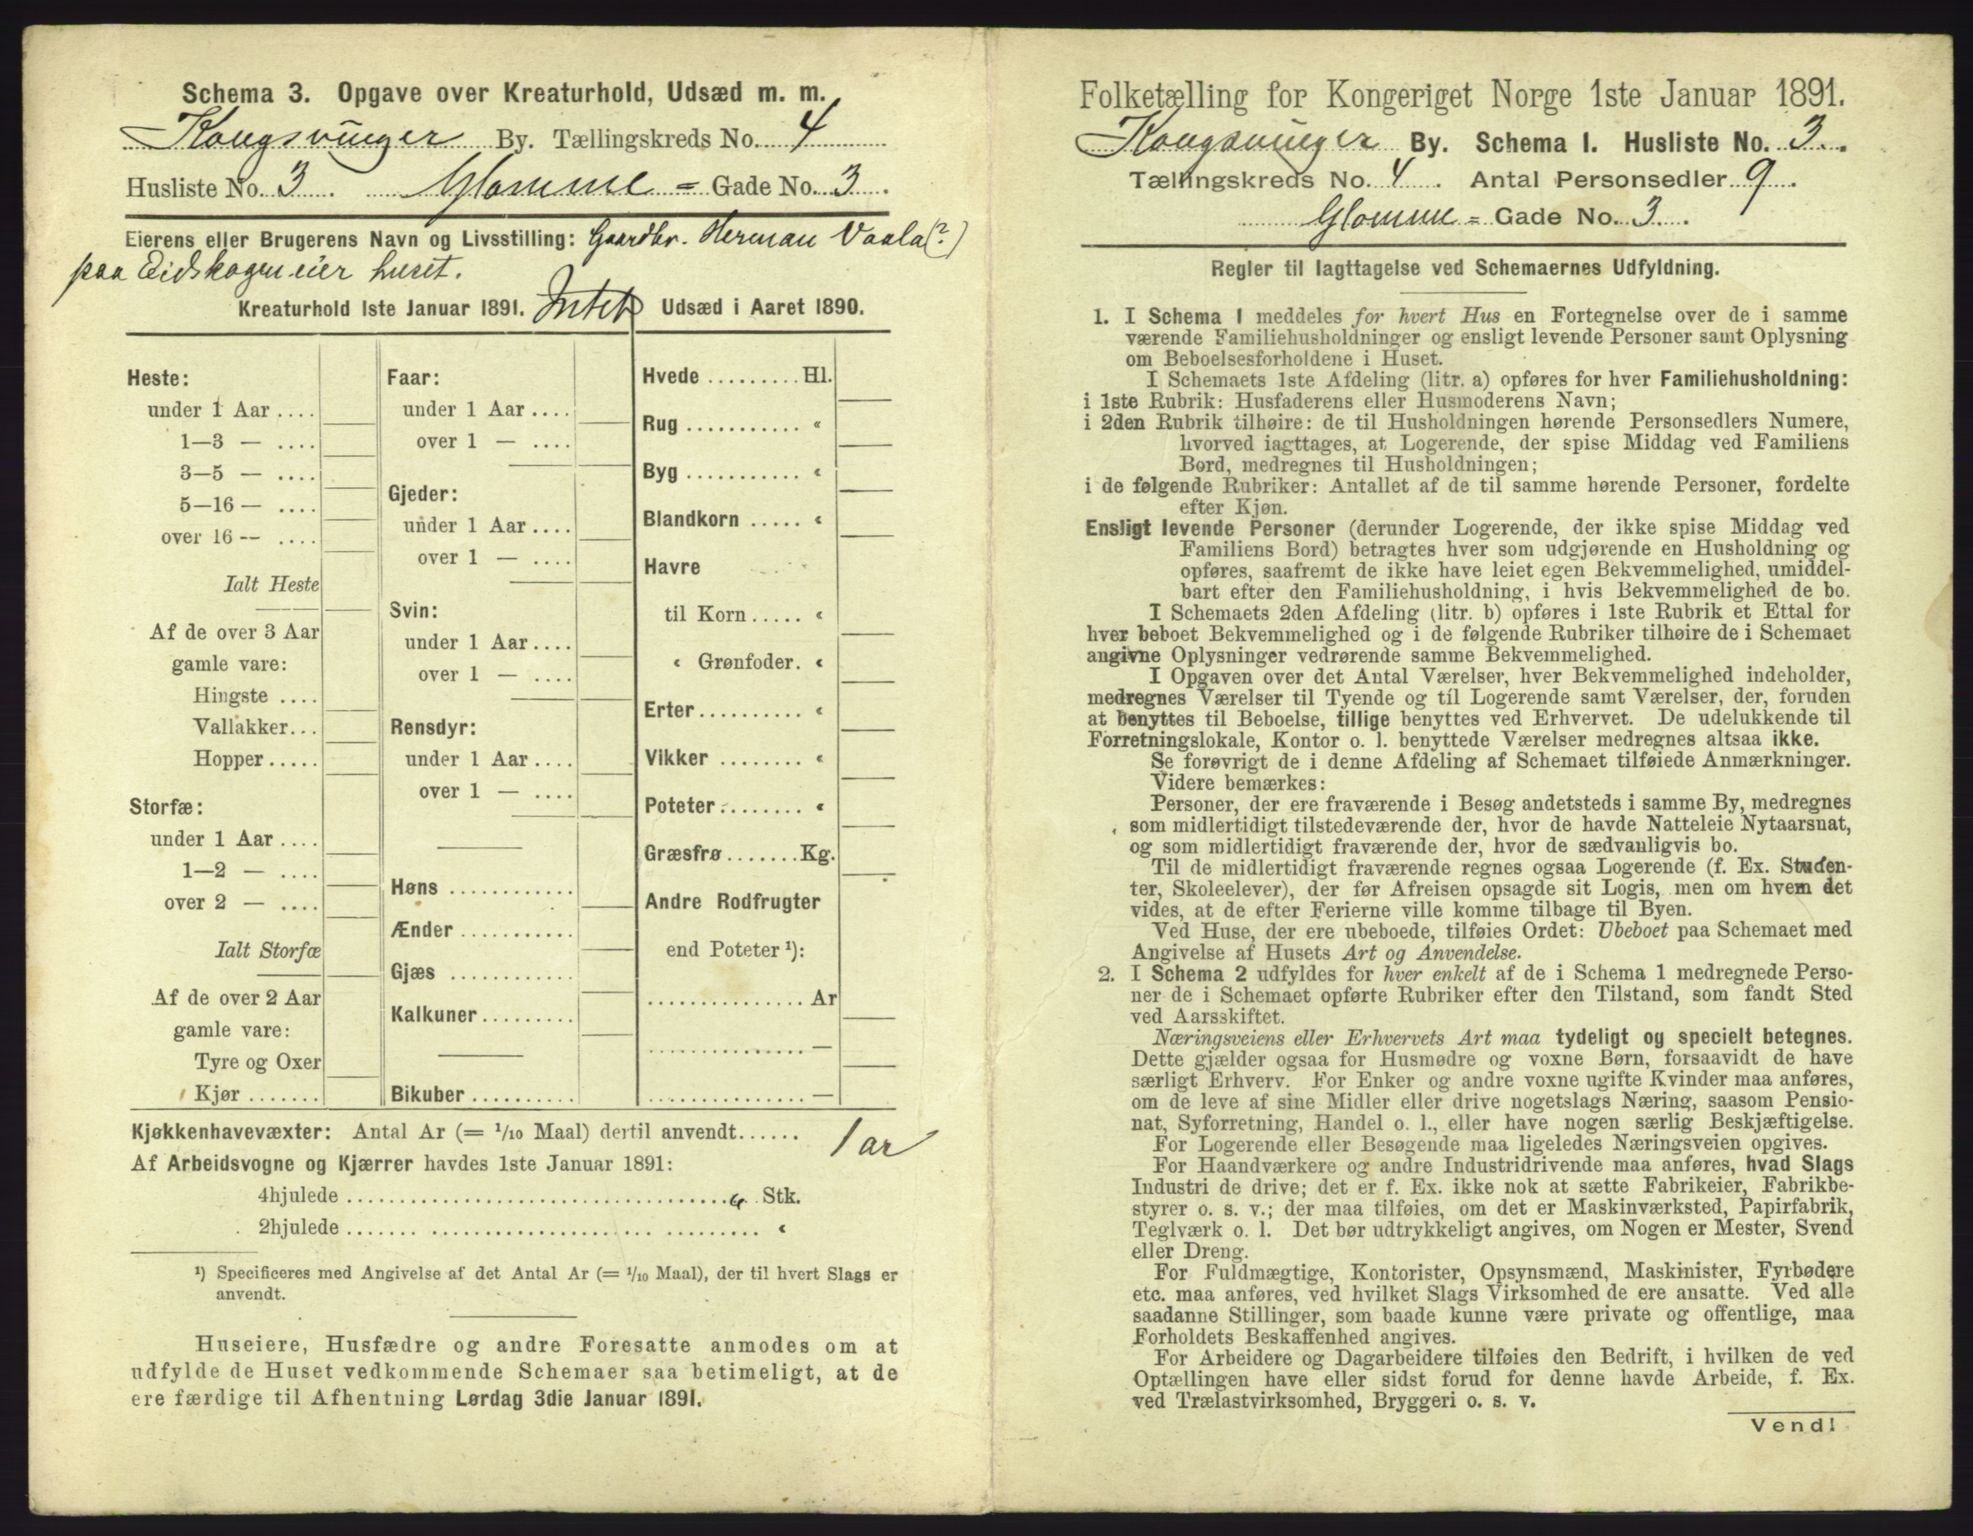 Schema 3. Opgave over Kreaturhold, Udsæd m. m.
Kongsvinger By. Tællingskreds No. 4
Husliste No. 3. Glomme = Gade No. 3.
Eierens eller Brugerens Navn og Livsstilling: Gaardbr. Herman Vaala (?)
paa Eidskogen eier huset.
Kreaturhold 1ste Januar 1891. Intet Udsæd i Aaret 1890.
Heste:
under 1 Aar ....
1—3 — ....
3—5 — ....
5—16 — ....
over 16 — ....
Ialt Heste
Af de over 3 Aar
gamle vare:
Hingste ....
Vallakker...
Hopper.....
Storfæ:
under 1 Aar ....
1—2 — ....
over 2 — ....
Ialt Storfæ
Af de over 2 Aar
gamle vare:
Tyre og Oxer
Kjør .......
Faar:
under 1 Aar ....
over 1 — ....
Gjeder:
under 1 Aar ....
over 1 — ....
Svin:
under 1 Aar....
over 1 — ....
Rensdyr:
under 1 Aar ....
over 1 — ....
Høns ...........
Ænder ..........
Gjæs ...........
Kalkuner........
Bikuber .........
Hvede ......... Hl.
Rug .......... «
Byg .......... «
Blandkorn ..... «
Havre
til Korn ..... «
« Grønfoder. «
Erter......... «
Vikker ....... «
Poteter....... «
Græsfrø ...... Kg.
Andre Rodfrugter
end Poteter ¹):
.............. Ar
.............. —
.............. —
Kjøkkenhavevæxter: Antal Ar (= 1/10 Maal) dertil anvendt...... 1 ar
Af Arbeidsvogne og Kjærrer havdes 1ste Januar 1891:
4hjulede .................................... Stk.
2hjulede .................................... «
¹) Specificeres med Angivelse af det Antal Ar (= 1/10 Maal), der til hvert Slags er
anvendt.
Huseiere, Husfædre og andre Foresatte anmodes om at
udfylde de Huset vedkommende Schemaer saa betimeligt, at de
ere færdige til Afhentning Lørdag 3die Januar 1891.
Folketælling for Kongeriget Norge 1ste Januar 1891.
Kongsvinger By. Schema I. Husliste No. 3.
Tællingskreds No. 4. Antal Personsedler 9.
Glomme = Gade No. 3.
Regler til Iagttagelse ved Schemaernes Udfyldning.
1. I Schema 1 meddeles for hvert Hus en Fortegnelse over de i samme
værende Familiehusholdninger og ensligt levende Personer samt Oplysning
om Beboelsesforholdene i Huset.
I Schemaets 1ste Afdeling (litr. a) opføres for hver Familiehusholdning:
i 1ste Rubrik: Husfaderens eller Husmoderens Navn;
i 2den Rubrik tilhøire: de til Husholdningen hørende Personsedlers Numere,
hvorved iagttages, at Logerende, der spise Middag ved Familiens
Bord, medregnes til Husholdningen;
i de følgende Rubriker: Antallet af de til samme hørende Personer, fordelte
efter Kjøn.
Ensligt levende Personer (derunder Logerende, der ikke spise Middag ved
Familiens Bord) betragtes hver som udgjørende en Husholdning og
opføres, saafremt de ikke have leiet egen Bekvemmelighed, umiddel-
bart efter den Familiehusholdning, i hvis Bekvemmelighed de bo.
I Schemaets 2den Afdeling (litr. b) opføres i 1ste Rubrik et Ettal for
hver beboet Bekvemmelighed og i de følgende Rubriker tilhøire de i Schemaet
angivne Oplysninger vedrørende samme Bekvemmelighed.
I Opgaven over det Antal Værelser, hver Bekvemmelighed indeholder,
medregnes Værelser til Tyende og til Logerende samt Værelser, der, foruden
at benyttes til Beboelse, tillige benyttes ved Erhvervet. De udelukkende til
Forretningslokale, Kontor o. l. benyttede Værelser medregnes altsaa ikke.
Se forøvrigt de i denne Afdeling af Schemaet tilføiede Anmærkninger.
Videre bemærkes:
Personer, der ere fraværende i Besøg andetsteds i samme By, medregnes
som midlertidigt tilstedeværende der, hvor de havde Natteleie Nytaarsnat,
og som midlertidigt fraværende der, hvor de sædvanligvis bo.
Til de midlertidigt fraværende regnes ogsaa Logerende (f. Ex. Studen-
ter, Skoleelever), der før Afreisen opsagde sit Logis, men om hvem det
vides, at de efter Ferierne ville komme tilbage til Byen.
Ved Huse, der ere ubeboede, tilføies Ordet: Ubeboet paa Schemaet med
Angivelse af Husets Art og Anvendelse.
2. I Schema 2 udfyldes for hver enkelt af de i Schema 1 medregnede Perso-
ner de i Schemaet opførte Rubriker efter den Tilstand, som fandt Sted
ved Aarsskiftet.
Næringsveiens eller Erhvervets Art maa tydeligt og specielt betegnes.
Dette gjælder ogsaa for Husmødre og voxne Børn, forsaavidt de have
særligt Erhverv. For Enker og andre voxne ugifte Kvinder maa anføres,
om de leve af sine Midler eller drive nogetslags Næring, saasom Pensio-
nat, Syforretning, Handel o. l., eller have nogen særlig Beskjæftigelse.
For Logerende eller Besøgende maa ligeledes Næringsveien opgives.
For Haandværkere og andre Industridrivende maa anføres, hvad Slags
Industri de drive; det er f. Ex. ikke nok at sætte Fabrikeier, Fabrikbe-
styrer o. s. v.; der maa tilføies, om det er Maskinværksted, Papirfabrik,
Teglværk o. l. Det bør udtrykkeligt angives, om Nogen er Mester, Svend
eller Dreng.
For Fuldmægtige, Kontorister, Opsynsmænd, Maskinister, Fyrbødere
etc. maa anføres, ved hvilket Slags Virksomhed de ere ansatte. Ved alle
saadanne Stillinger, som baade kunne være private og offentlige, maa
Forholdets Beskaffenhed angives.
For Arbeidere og Dagarbeidere tilføies den Bedrift, i hvilken de ved
Optællingen have eller sidst forud for denne havde Arbeide, f. Ex.
ved Trælastvirksomhed, Bryggeri o. s. v.
Vend!